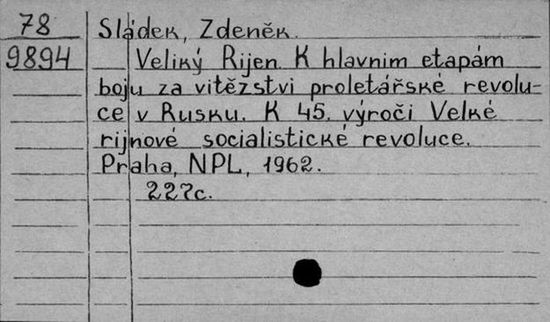 78 Sládek, Zdeněk.
9894 Veliký Rijen. K hlavnim etapám
boju za vitězstvi proletářské revolu-
ce v Rusku. K 45. výroči Velké
rijnové socialistické revoluce.
Praha, NPL, 1962.
227c.